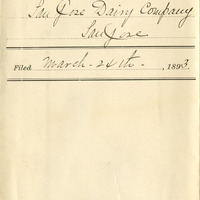 San Jose Dairy Company
San Jose
Filed March - 24th - , 1893.